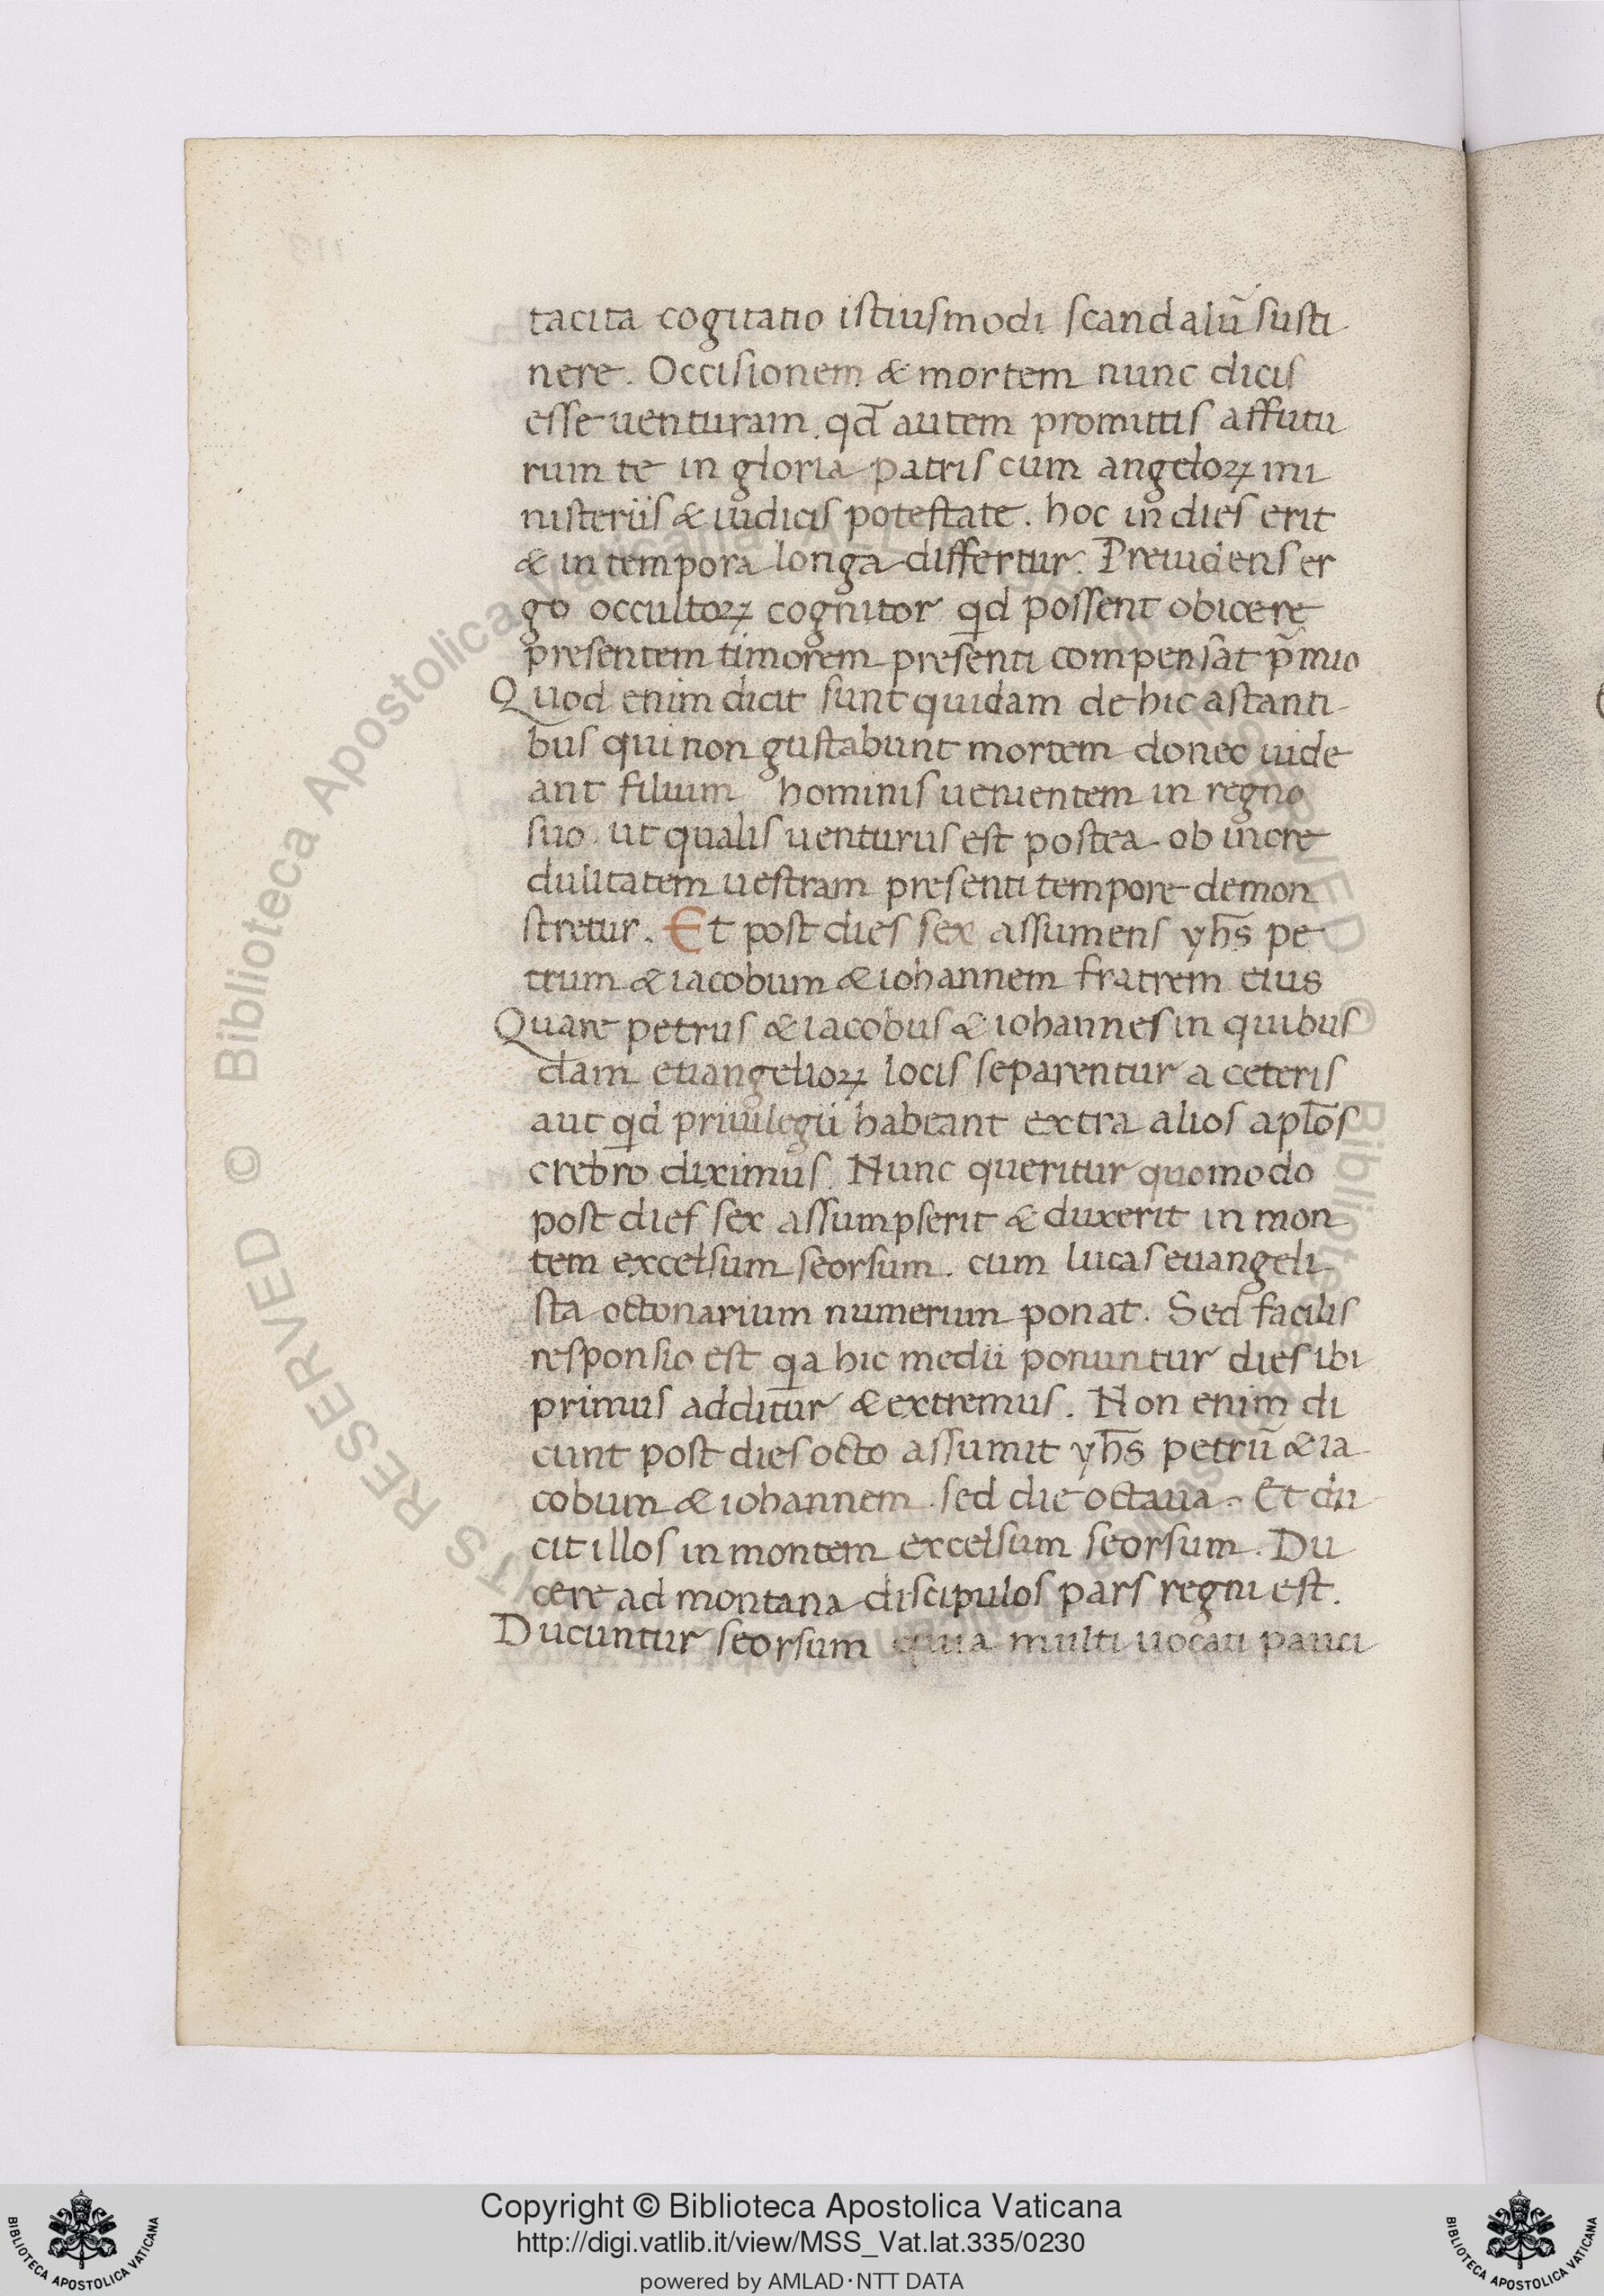 tacita cogitatio istiusmodi scandalū susti
nere. Occisionem & mortem nunc dicis
esse uenturam. qd̄ autem promittis affutu
rum te in gloria patris cum angeloꝝ mi
nisteriis & iudicis potestate. hoc in dies erit
& in tempora longa differtur. Preuidens er
go occultoꝝ cognitor qd possent obicere
presentem timorem presenti compensāt p̄mio
Quod enim dicit sunt quidam de hic astanti
bus qui non gustabunt mortem donec uide
ant filium hominis uenientem in regno
suo. ut qualis uenturus est postea ob incre
dulitatem uestram presenti tempore demon
stretur. Et post dies sex assumens yh̄s pe
trum & iacobum & iohannem fratrem eius
Quare petrus & iacobus & iohannes in quibus
dam euangelioꝝ locis separentur a ceteris
aut qd priuilegii habeant extra alios apl̄os
crebro diximus. Nunc queritur quomodo
post dies sex assumpserit & duxerit in mon
tem excelsum seorsum. cum lucas euangeli
sta octonarium numerum ponat. Sed facilis
responsio est qa hic medii ponuntur dies ibi
primus additur & extremus. Non enim di
cunt post dies octo assumit yh̄s petrū & ia
cobum & iohannem. sed die octaua. Et du
cit illos in montem excelsum seorsum. Du
cere ad montana discipulos pars regni est.
Ducuntur seorsum quia multi uocati pauci
© Biblioteca Apostolica Vaticana
Copyright © Biblioteca Apostolica Vaticana
http://digi.vatlib.it/view/MSS_Vat.lat.335/0230
powered by AMLAD·NTT DATA
BIBLIOTECA APOSTOLICA VATICANA
BIBLIOTECA APOSTOLICA VATICANA